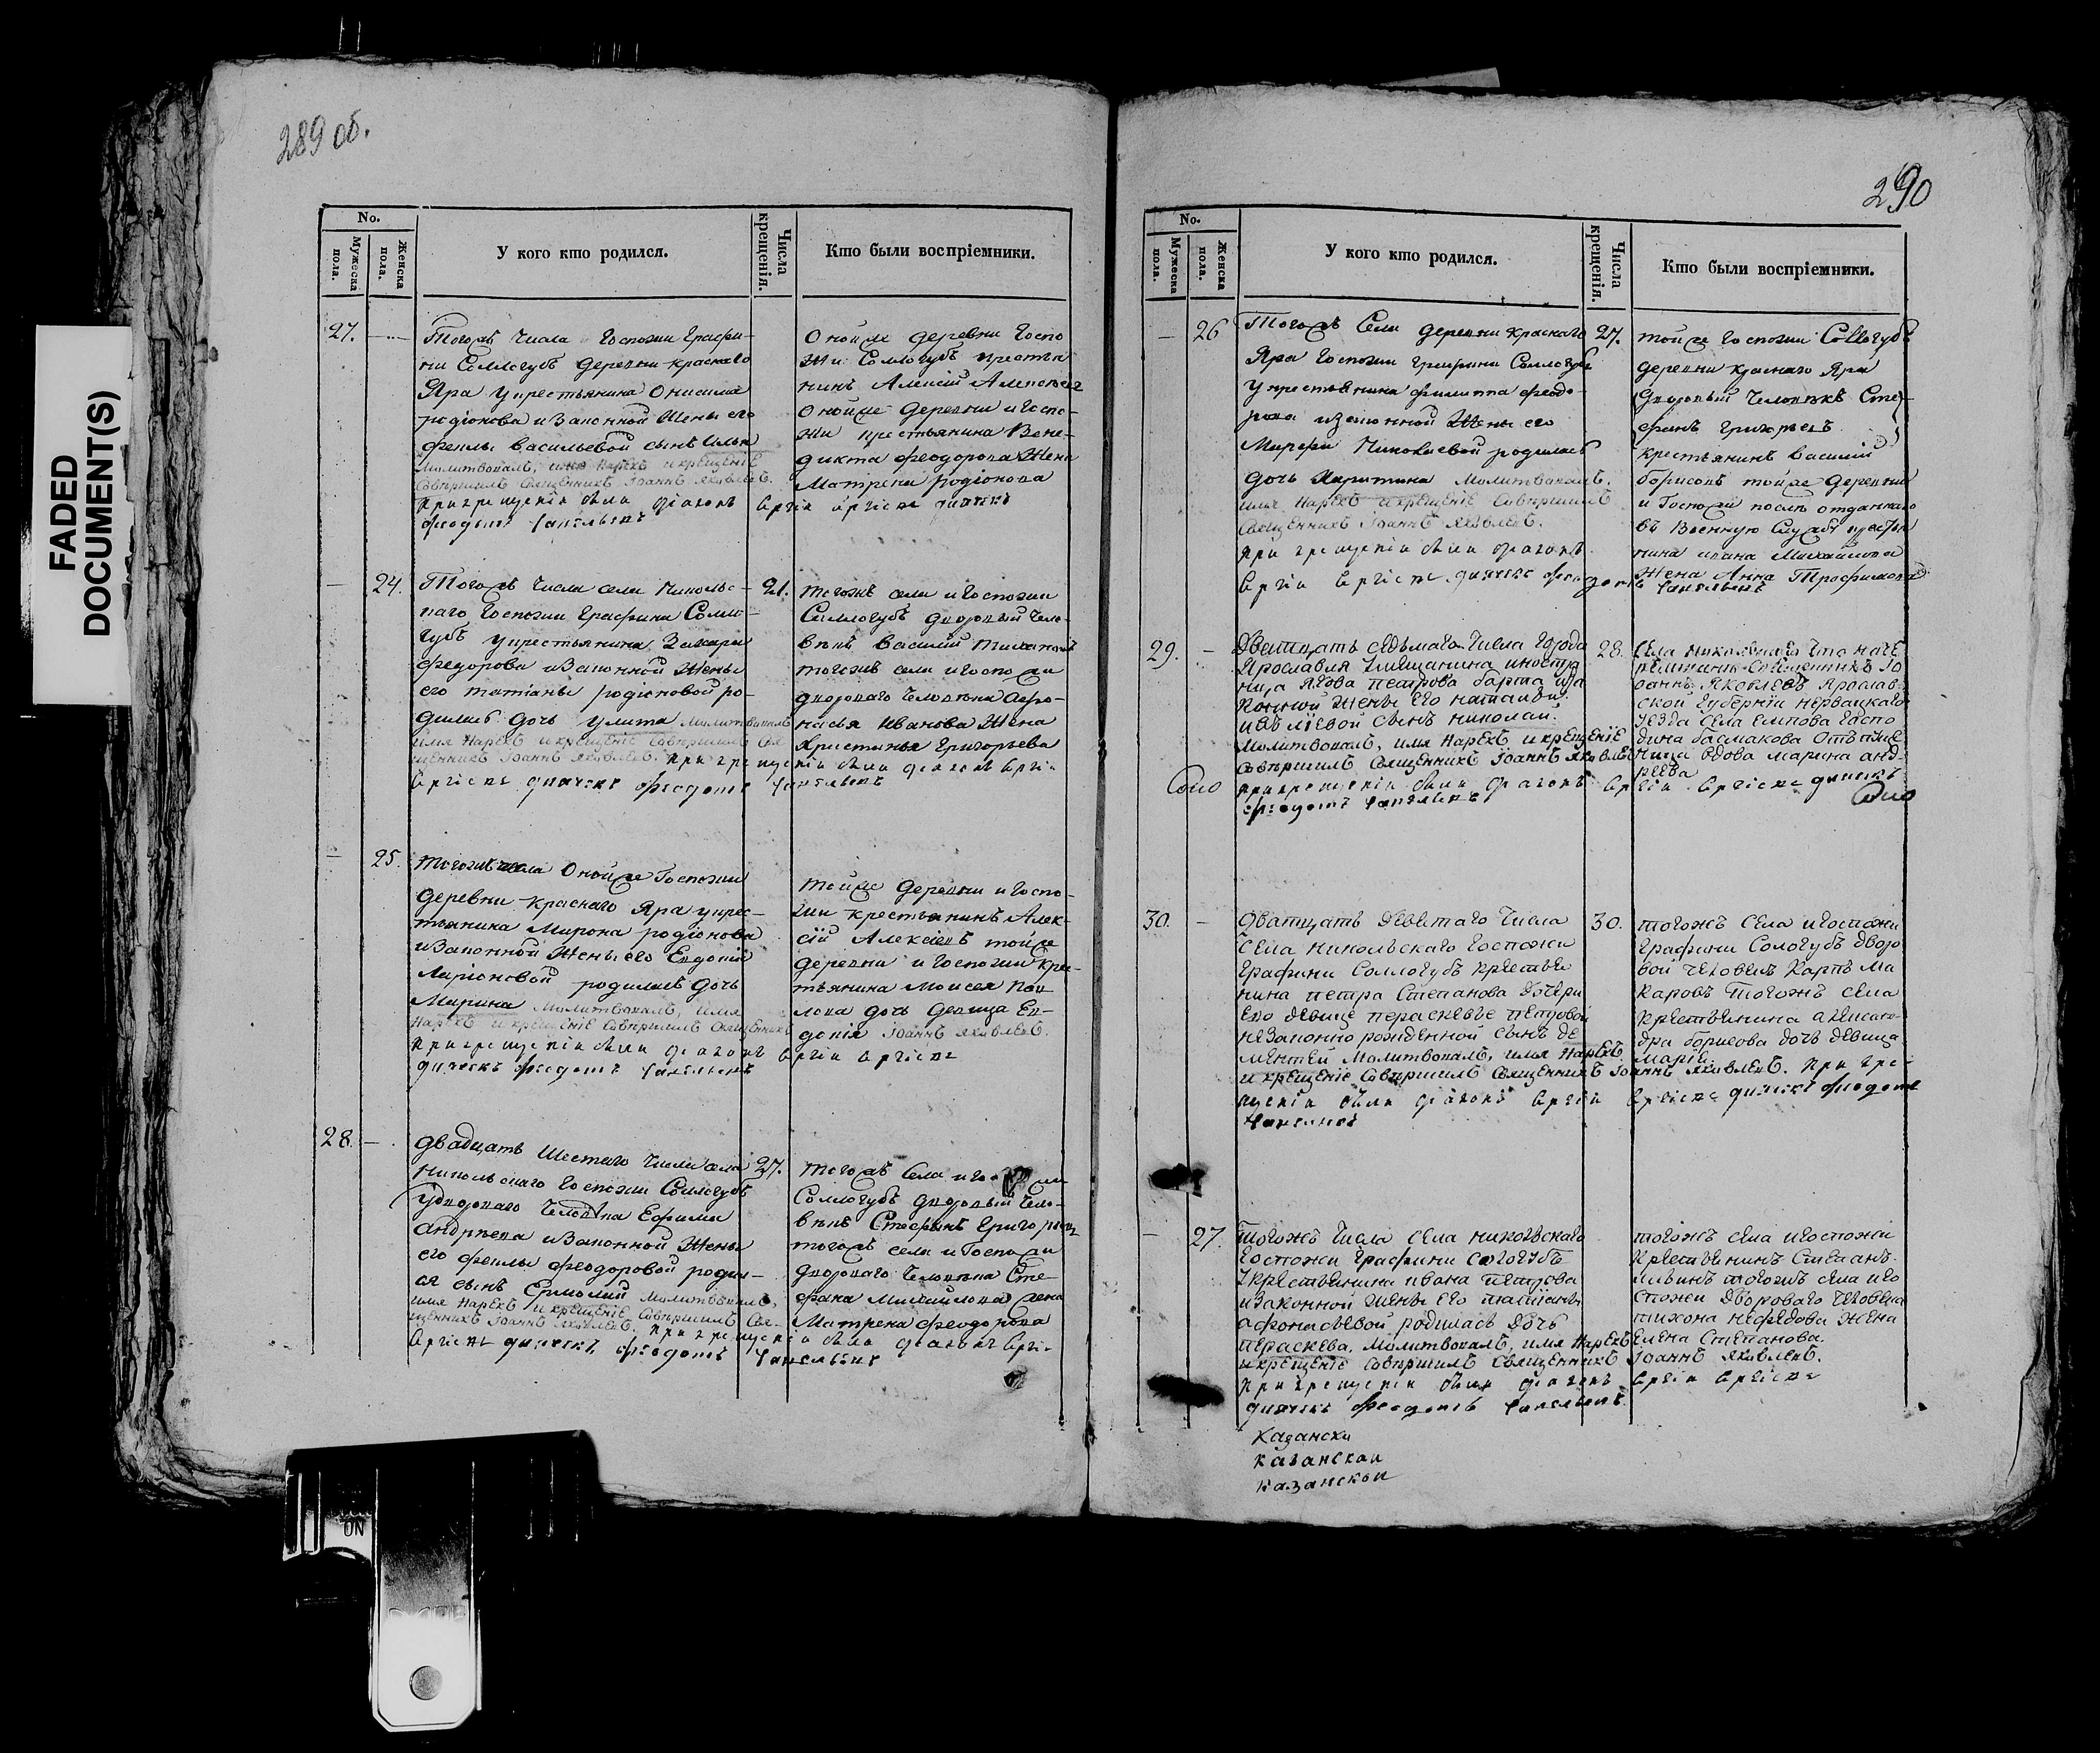 289 об.
No.
Мужеска пола.
Женска пола.
У кого кто родился.
Числа крещенія.
Кто были воспріемники.
27. —
Тогожъ числа Госпожи Графи-
ни Соллогубъ деревни Краснаго
Яра у крестьянина Онисима
родіонова и законной жены его
феклы васильевой сынъ Илья
Молитвовалъ, имя нарехъ и крещеніе
совершилъ священникъ Іоаннъ Яковлевъ.
при крещеніи были діаконъ
Оной же деревни Госпо
жи Соллогубъ крестья
нинъ Алексій Алексеевъ
Оной же деревни и Госпо-
жи крестьянина Вене-
дикта феодорова жена
Матрена родіонова
— 24.
Тогожъ числа села Никольс-
каго Госпожи Графини Солло-
губъ у крестьянина Захара
федорова и законной жены
его татіаны родіоновой ро-
дилась дочь улита молитвовалъ
имя нарехъ и крещеніе совершилъ свя
щенникъ Іоаннъ Яковлевъ. при креще
ніи были діаконъ
21.
тогожъ села и Госпожи
Соллогубъ дворовый чело-
векъ василій
тогожъ села и Госпожи
двороваго человека Афо-
насья Иванова жена
Христинья Григорьева
— 25.
тогожъ числа Оной же Госпожи
деревни Краснаго Яра у крес-
тьянина Мирона родіонова
и законной жены его Евдокіи
Ларіоновой родилась дочь
Марина молитвовалъ, имя
нарехъ и крещеніе совершилъ священникъ
Іоаннъ Яковлевъ.
при крещеніи были діаконъ
той же деревни и Госпо-
жи крестьянинъ Алек-
сій Алексеевъ той же
деревни и Госпожи крес-
тьянина Моисея Пав
лова дочь девица Ев-
докія
28. —
двадцать шестаго числа села
Никольскаго Госпожи Соллогубъ
у двороваго человека Ефима
андреева и законной жены
его феклы феодоровой родил-
ся сынъ Ермолай молитвовалъ,
имя нарехъ и крещеніе совершилъ свя-
щенникъ Іоаннъ Яковлевъ. при креще
ніи были діаконъ
27.
тогожъ села и Госпожи
Соллогубъ дворовый чело-
векъ Стефанъ Григорьевъ
тогожъ села и Госпожи
двороваго человека Сте
фана Михайлова жена
Матрена феодорова
290
No.
Мужеска пола.
Женска пола.
У кого кто родился.
Числа крещенія.
Кто были воспріемники.
— 26
Тогожъ Села деревни Краснаго
Яра Госпожи Графини Соллогубъ
у крестьянина филиппа феодо-
рова и законной жены его
Марфы Николаевой родилась
дочь Харитина молитвовалъ,
имя нарехъ и крещеніе совершилъ
священникъ Іоаннъ Яковлевъ.
при крещеніи были діаконъ
27.
той же Госпожи Соллогубъ
деревни Краснаго Яра
дворовый человекъ Сте-
фанъ григорьевъ
крестьянинъ василій
борисовъ той же деревни
и Госпожи после отданнаго
въ военную службу крестья
нина ивана Михайлова
жена Анна Трофимова
29. —
Дватцать седьмаго числа города
Ярославля у мещанина иностра
нца Якова петрова барта и за
конной жены его наталіи
сынъ николай.
Молитвовалъ, имя нарехъ и крещеніе
совершилъ священникъ Іоаннъ Яковлевъ
при крещеніи были діаконъ
28.
села никольскаго
священникъ Іо
аннъ Яковлевъ Ярослав-
ской губерніи
уезда села Госпо
дина басмакова
вдова марина анд-
реева
30. —
дватцать девятаго числа
села никольскаго госпожи
графини Соллогубъ крестья
нина петра степанова дочери
его девице параскеве петровой
незаконно рожденной сынъ де
ментей молитвовалъ, имя нарехъ
и крещеніе совершилъ священникъ Іоаннъ Яковлевъ. при кре-
щеніи были діаконъ
30.
тогожъ села и госпожи
графини Сологубъ дворо
вой человекъ Карпъ ма
каровъ тогожъ села
крестьянина александра
борисова дочь девица
марія
— 27.
тогожъ числа села никольскаго
госпожи графини сологубъ
у крестьянина ивана петрова
и законной жены его татіаны
афонасьевой родилась дочь
параскева. Молитвовалъ, имя нарехъ
и крещеніе совершилъ священникъ Іоаннъ Яковлевъ.
при крещеніи были діаконъ
тогожъ села и госпожи
крестьянинъ степанъ
ильинъ тогожъ села и го
спожи двороваго человека
тихона нефедова жена
Елена Степанова.
Казански
казанскои
казанскои
FADED
DOCUMENT(S)
ON